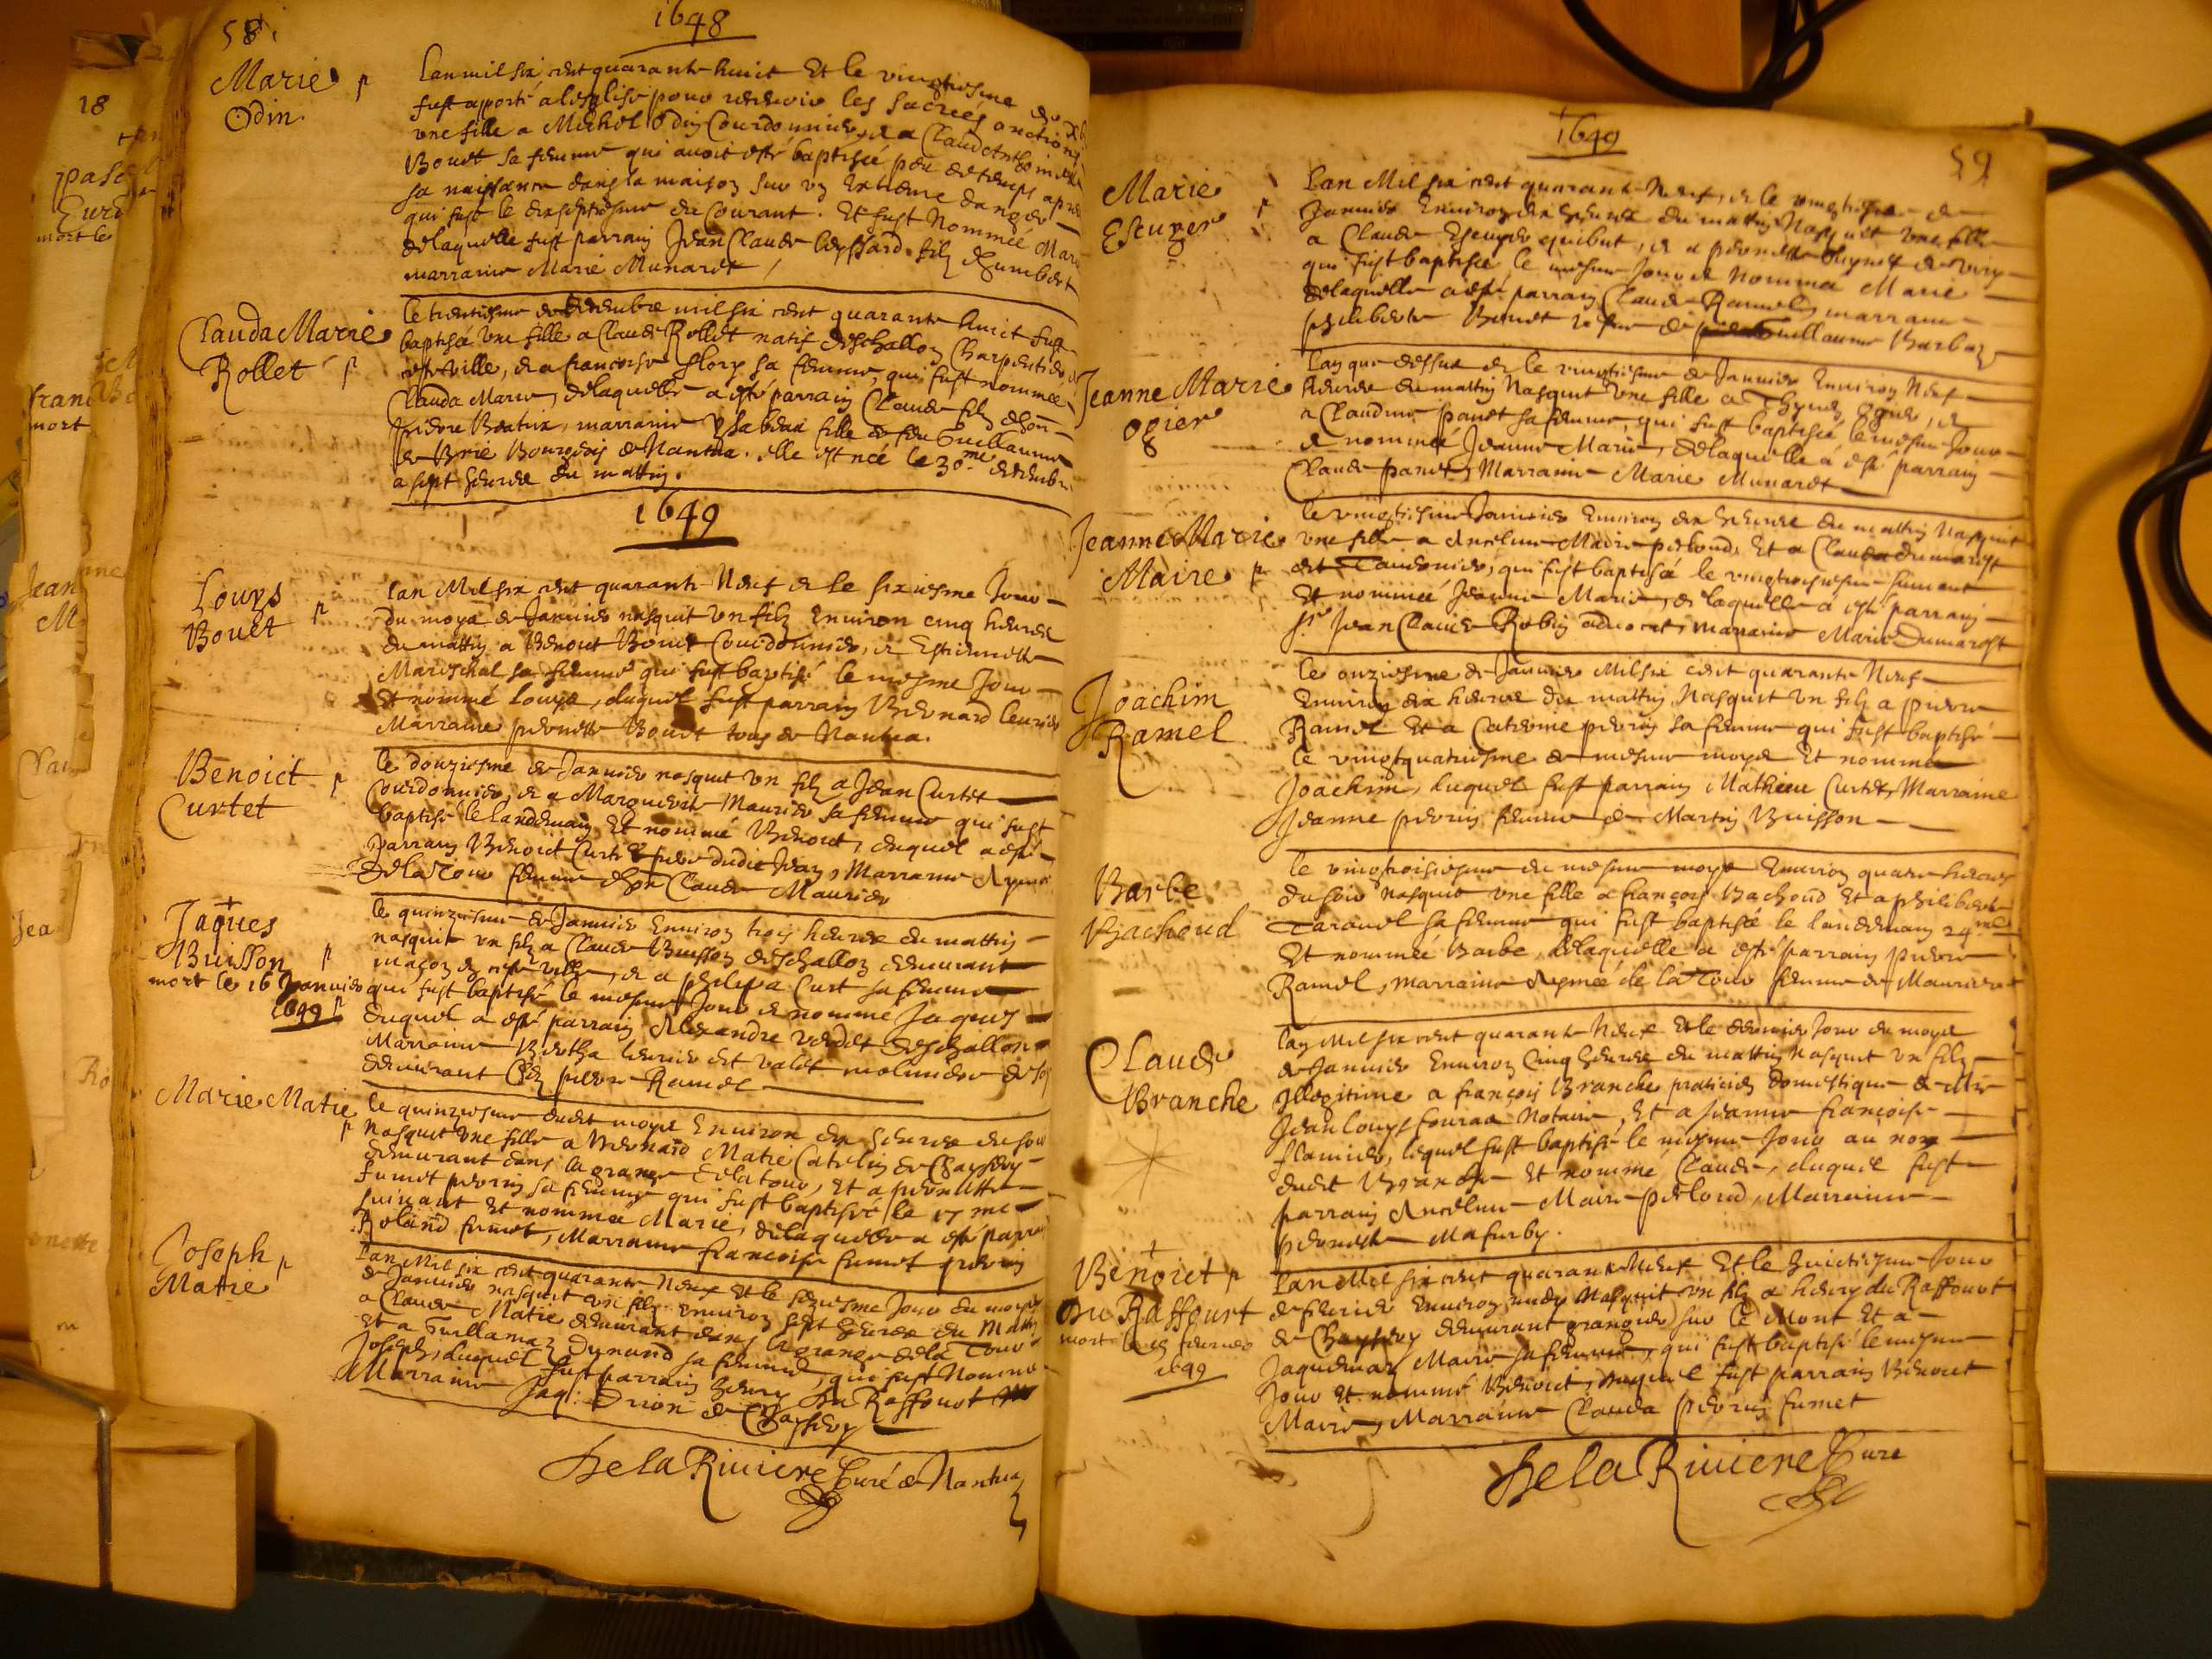 58.
1648
Marie
Odin.
Lan mil six cent quarante huict Et le vingtiesme de
fust apporté a lesglise pour recevoir les sacrées onctions
une fille a Michel Odin Courdonnier, et a Claud Anthoinette
Bouet sa femme qui avoit esté baptisée peu de temps apres
sa naissance dans la maison sur un extreme danger
qui fust le dixseptiesme du Courant. Et fust Nommée Marie
de laquelle fust parrain Jean Claude filz dhumbert
marraine Marie Munardt
Clauda Marie
Rollet
le trentiesme decembre mil six cent quarante huict fust
baptisé une fille a Claude Rollet natif deschallon Charpentier
ceste ville, et a francoise flory sa femme, qui fust nommée
Clauda Marie, de laquelle a esté parrain Claude filz dhon
pierre Beatrix, marraine Ysabeau fille de feu Guillaume
de Brie Bourgeois de Nantua. elle est née le 30me decembre
a sept heures du mattin.
1649
Louys
Bouet
Lan Mil six cent quarante Neuf et le sixiesme Jour
du moys de Janvier nasquit un filz environ cinq heures
du mattin a Benoict Bouet Courdonnier, et Estiennette
Mareschal sa femme qui fust baptisé le mesme Jour
Et nommé Louys, duquel fust parrain Bernard
Marraine pernette Bouet tous de Nantua.
Benoict
Curtet
le douziesme de Janvier nasquit un filz a Jean Curtet
Courdonnier, et a Marguerite Maurier sa femme qui fust
baptisé le landemain Et nommé Benoict, duquel a esté
parrain Benoict Curtet frere dudict Jean, Marraine Aymée
De la Tour femme dhon Claude Maurier
Jaques
Buisson
mort le 16 Janvier
1649
le quinziesme de Janvier Environ trois heures du mattin
nasquit un filz a Claude Buisson deschallon demeurant
maçon en ceste ville, et a philipa Curt sa femme
qui fust baptisé le mesme Jour et nommé Jaques
duquel a esté parrain Alexandre deschallon
Marraine Bertha dit valet molunier
demeurant Chez pierre Ramel
Marie Matie
le quinziesme dudit moys Environ dix heures du soir
Nasquit une fille a Bernard Matie de Chaissery
demeurant dans la grange de la tour, Et a pernette
fumet perrin sa femme qui fust baptisée le 17 me
suivant Et nommée Marie, de laquelle a esté parrain
Roland fumet, Marraine francoise fumet perrin
Joseph
Matie
Lan Mil six cent quarante Neuf Et le seziesme Jour du moys
de Janvier nasquit un filz environ sept heures du Mattin
a Claude Matie demeurant dans la grange de la Tour
Et a Guillamaz Dunand sa femme, qui fust Nommé
Joseph, duquel fust parrain henry Du Raffourt
Marraine Jaq: Drion de Chaissery
De la Riviere Curé de Nantua
1649
59
Marie
Escuyer
Lan Mil six cent quarante Neuf, et le vingtiesme de
Janvier Environ dix heures du mattin Nasquit une fille
a Claude Escuyer, et a pernette
qui fust baptisée le mesme Jour et nommée Marie
de laquelle a esté parrain Claude Ramel, marraine
philiberte Bouet de Guillaume Barbaz
Jeanne Marie
Ogier
Lan que dessus et le vingtiesme de Janvier Environ Neuf
heures du mattin Nasquit une fille a Ogier, et
a Claudine panet sa femme, qui fust baptisée le mesme Jour
et nommée Jeanne Marie, de laquelle a esté parrain
Claude panet, Marraine Marie Munardt
Jeanne Marie
Maire
le vingtiesme Janvier Environ dix heures du mattin Nasquit
une fille a Ancelme Maire peloud, Et a Clauda dumarest
dit, qui fust baptisée le vingtroisiesme suivant
Et nommée Jeanne Marie, de laquelle a esté parrain
Sr Jean Claude Robin advocat, marraine Marie Dumarest
Joachim
Ramel
le onziesme de Janvier Mil six cent quarante Neuf
Environ dix heures du mattin Nasquit un filz a pierre
Ramel Et a Caterine perrin sa femme qui fust baptisé
le vingtquatriesme du mesme moys Et nommé
Joachim, duquel fust parrain Mathieu Curtet, Marraine
Jeanne perrin femme de Martin Buisson
Barbe
Bachoud
le vingtroisiesme du mesme moys Environ quatre heures
du soir Nasquit une fille a françois Bachoud Et a philiberte
Taravel sa femme qui fust baptisée le landemain 24me
Et nommée Barbe, de laquelle a esté parrain pierre
Ramel, marraine Aymée de la Tour femme de Maurier
Claude
Branche
Lan Mil six cent quarante Neuf Et le dernier Jour du moys
de Janvier Environ Cinq heures du mattin Nasquit un filz
Illegitime a françois Branche praticien domestique de Me
Jean Louys Notaire, Et a Jeanne françoise
flamier, lequel fust baptisé le mesme Jour au nom
dudit Branche Et nommé Claude, duquel fust
parrain Ancelme Maire peloud, Marraine
pernette
Benoict
Du Raffourt
mort le febvrier
1649
Lan Mil six cent quarante Neuf Et le huictiesme Jour
de febvrier Environ midy Nasquit un filz a henry du Raffourt
de Chayssery demeurant granger sur le Mont Et a
Jaquemaz Maire sa femme, qui fust baptisé le mesme
Jour Et nommé Benoict, duquel fust parrain Benoict
Maire, Marraine Clauda perrin fumet
De la Riviere Curé